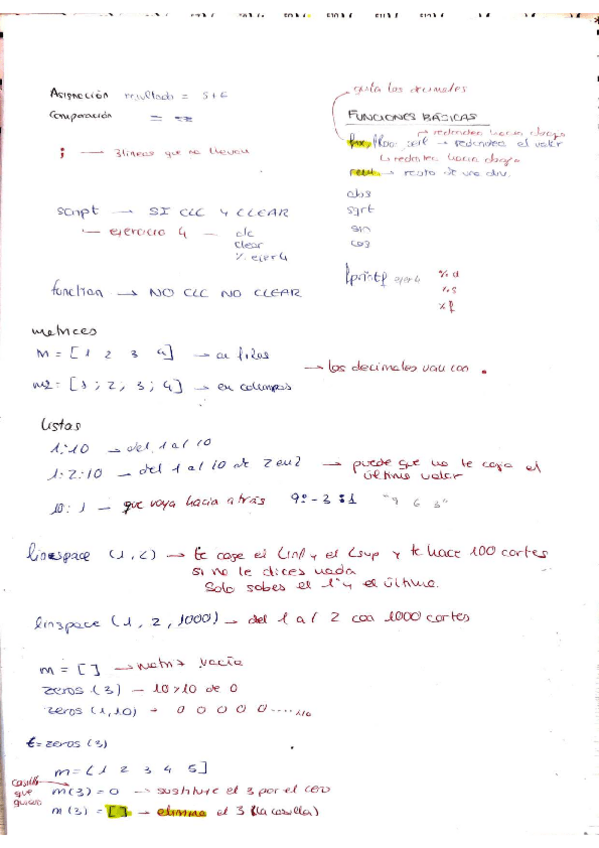 Asignación resultado = 5+6
Comparación = ==
; → 3 lineas que no lleven
script → SI CLC Y CLEAR
→ ejercicio 4 - clc
clear
% ejer 4
function → NO CLC NO CLEAR
quita los decimales
FUNCIONES BÁSICAS
→ redondea hacia abajo
fix, floor, ceil → redondea el valor
↳ redondea hacia abajo
rem → resto de una div.
abs
sqrt
sin
cos
fprintf ejer 6 %d
%s
%f
matrices
M = [1 2 3 4] → en filas
m2 = [1 ; 2 ; 3 ; 4] → en columnas
→ los decimales van con .
listas
1:10 → del 1 al 10
1:2:10 → del 1 al 10 de 2 en 2 → puede que no te coja el
último valor
10:1 → que vaya hacia atrás 9: -3 :1 "9 6 3"
linespace (1,2) → te coge el Linf y el Lsup y te hace 100 cortes
si no le dices nada
Solo sabes el 1º y el último.
linspace (1, 2, 1000) → del 1 al 2 con 1000 cortes
m = [ ] → matriz vacía
zeros (3) → 10x10 de 0
zeros (1,10) → 0 0 0 0 0 .....
t = zeros (3)
m = (1 2 3 4 5]
casilla que quieras
m(3) = 0 → sustituye el 3 por el cero
m(3) = [ ] → elimina el 3 (la casilla)